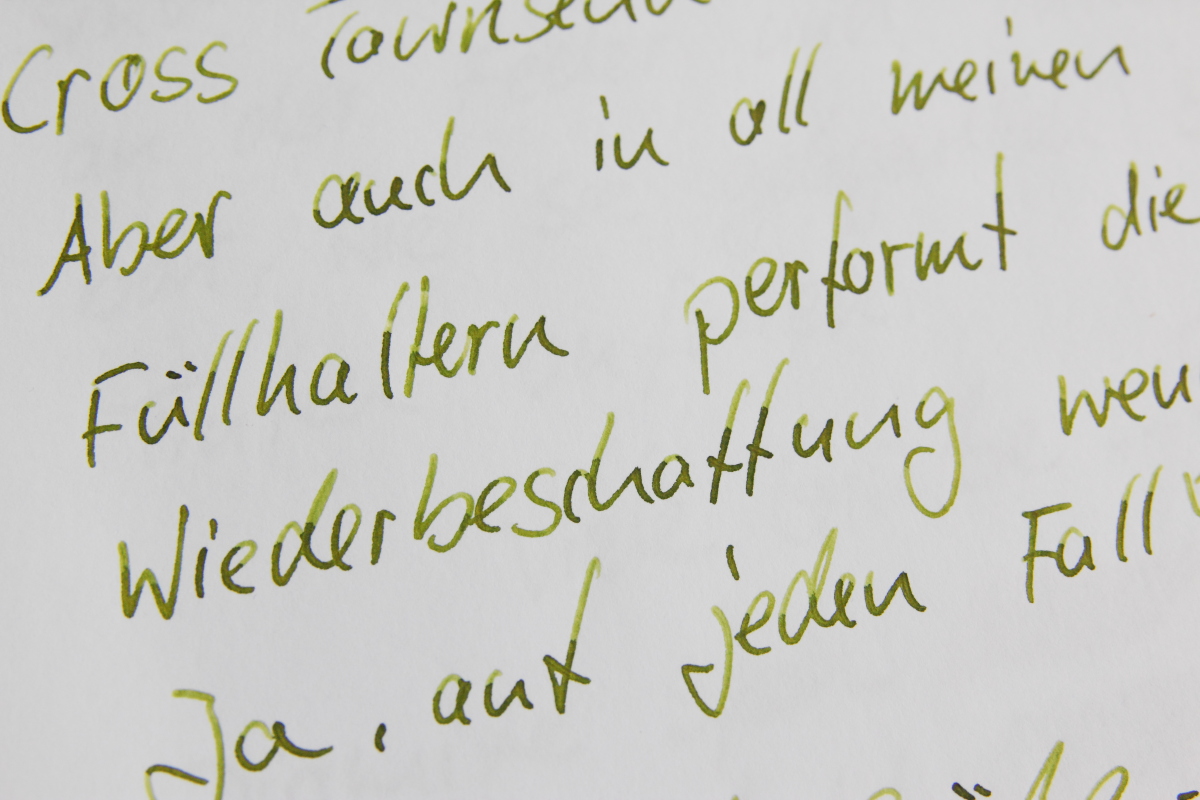 Cross Townsend
Aber auch in all meinen
Füllhaltern performt die
Wiederbeschaffung
Ja, auf jeden Fall